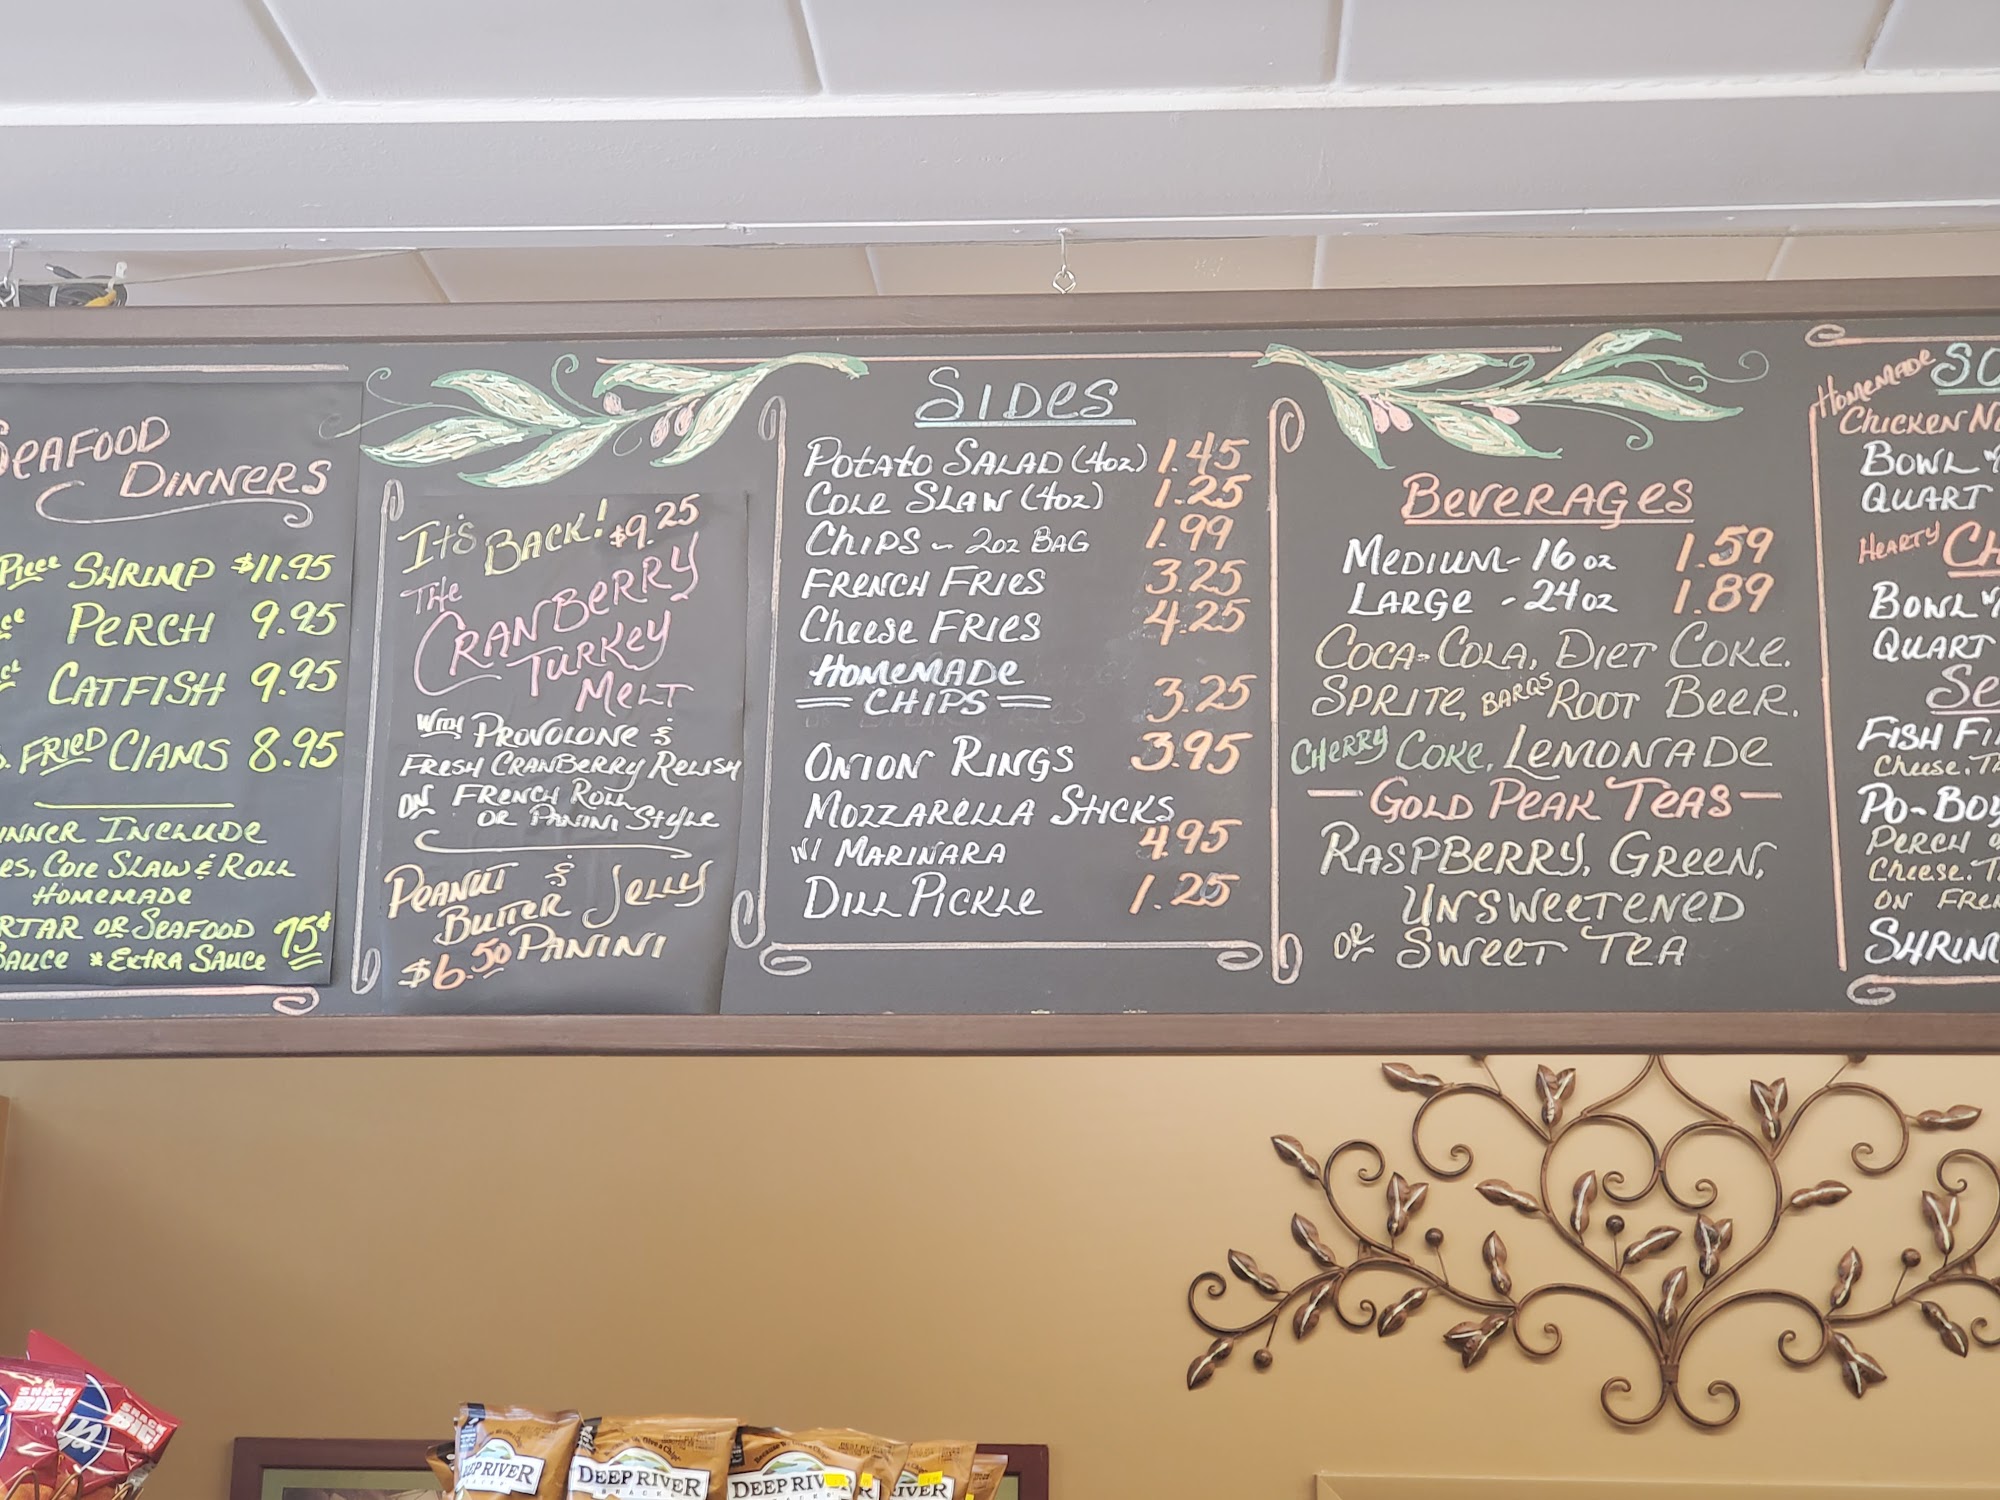 SEAFOOD
DINNERS
Piece SHRIMP $11.95
PERCH 9.95
CATFISH 9.95
FRIED CLAMS 8.95
INCLUDE
COLE SLAW & ROLL
HOMEMADE
OR SEAFOOD
SAUCE * EXTRA SAUCE 75¢
IT'S BACK! $9.25
THE
CRANBERRY
TURKEY
MELT
WITH PROVOLONE &
FRESH CRANBERRY RELISH
ON FRENCH ROLL
OR PANINI STYLE
PEANUT &
BUTTER JELLY
$6.50 PANINI
SIDES
POTATO SALAD (4oz) 1.45
COLE SLAW (4oz) 1.25
CHIPS - 2oz BAG 1.99
FRENCH FRIES 3.25
CHEESE FRIES 4.25
HOMEMADE
CHIPS 3.25
ONION RINGS 3.95
MOZZARELLA STICKS
W/ MARINARA 4.95
DILL PICKLE 1.25
BEVERAGES
MEDIUM - 16 oz 1.59
LARGE - 24 oz 1.89
COCA-COLA, DIET COKE.
SPRITE, BARQS ROOT BEER.
CHERRY COKE, LEMONADE
— GOLD PEAK TEAS —
RASPBERRY, GREEN,
UNSWEETENED
OR SWEET TEA
HOMEMADE
CHICKEN
BOWL
QUART
HEARTY
BOWL
QUART
FISH
CHEESE.
PO-BOY
PERCH
CHEESE.
ON
SNACK
BIG!
SNACK
BIG!
DEEP RIVER
SNACKS
DEEP RIVER
SNACKS
DEEP RIVER